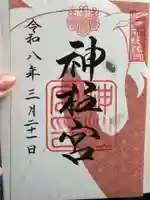 神柱宮
令和八年三月二十一日